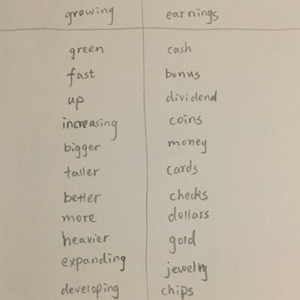 growing earnings
green cash
fast bonus
up dividend
increasing coins
bigger money
taller cards
better checks
more dollars
heavier gold
expanding jewelry
developing chips